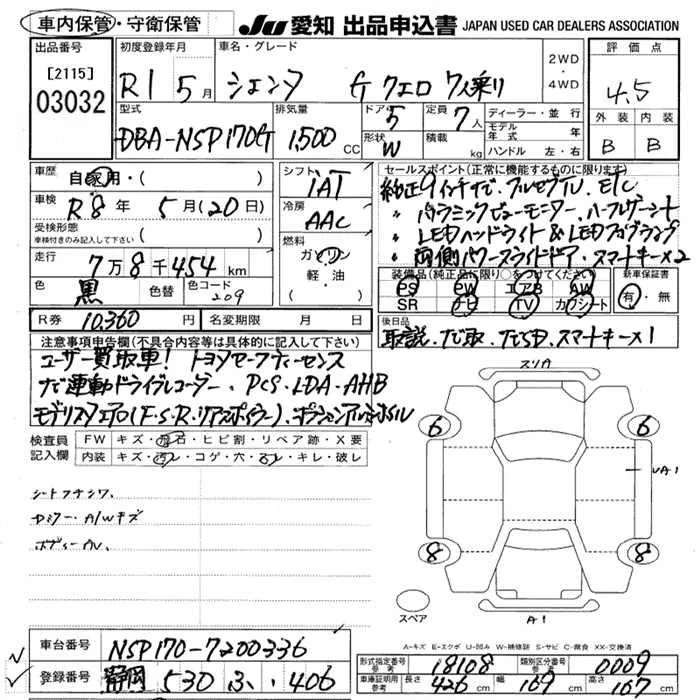 車内保管・守衛保管 JU 愛知 出品申込書 JAPAN USED CAR DEALERS ASSOCIATION
出品番号 初度登録年月 車名・グレード 2WD・4WD 評価点
[2115] R1 5月 シエンタ G クエロ 7人乗り 4.5
03032
型式 排気量 ドア 定員 ディーラー・並行 外装 内装
DBA-NSP170G 1,500CC 5 7人 モデル年式 年 B B
形状 W 積載 kg ハンドル 左・右
車歴 自家用・( ) シフト iAT セールスポイント(正常に機能するものに限る)
車検 R8年 5月(20日) 冷房 AAC 純正9インチナビ・フルセグTV, ETC
受検形態 車検付きのみ記入して下さい ( ) ・パノラミックビューモニター・ハーフレザーシート
燃料 ガソリン 軽・油 ・LEDヘッドライト&LEDフォグランプ
走行 7万8千454km ・両側パワースライドドア・スマートキー×2
色 黒 色替 色コード 209 装備品(純正品に限り○をつけてください) 新車保証書
PS PW エアB AW 有・無
SR ナビ TV カワシート
R券 10,360円 名変期限 月 日 後日品
取説・ナビ取・ナビSD・スマートキー×1
注意事項申告欄(不具合内容等は具体的に記入して下さい)
ユーザー買取車! トヨタセーフティーセンス
ナビ連動ドライブレコーダー・PCS・LDA・AHB
モデリスタエアロ(F・S・R・リアスポイラー)
検査員記入欄 FW キズ・飛石・ヒビ割・リペア跡・X要
内装 キズ・汚レ・コゲ・穴・スレ・キレ・破レ
シートフナシワ,
A/Wキズ
スリA
6 6
UA1
8 8
スペア A1
A-キズ E-エクボ U-凹み W-補修跡 S-サビ C-腐食 XX-交換済
車台番号 NSP170-7200336 形式指定番号 参考 18108 類別区分番号 参考 0009
登録番号 静岡 530 ふ・406 車庫証明用 参考 長さ 426cm 幅 169cm 高さ 167cm